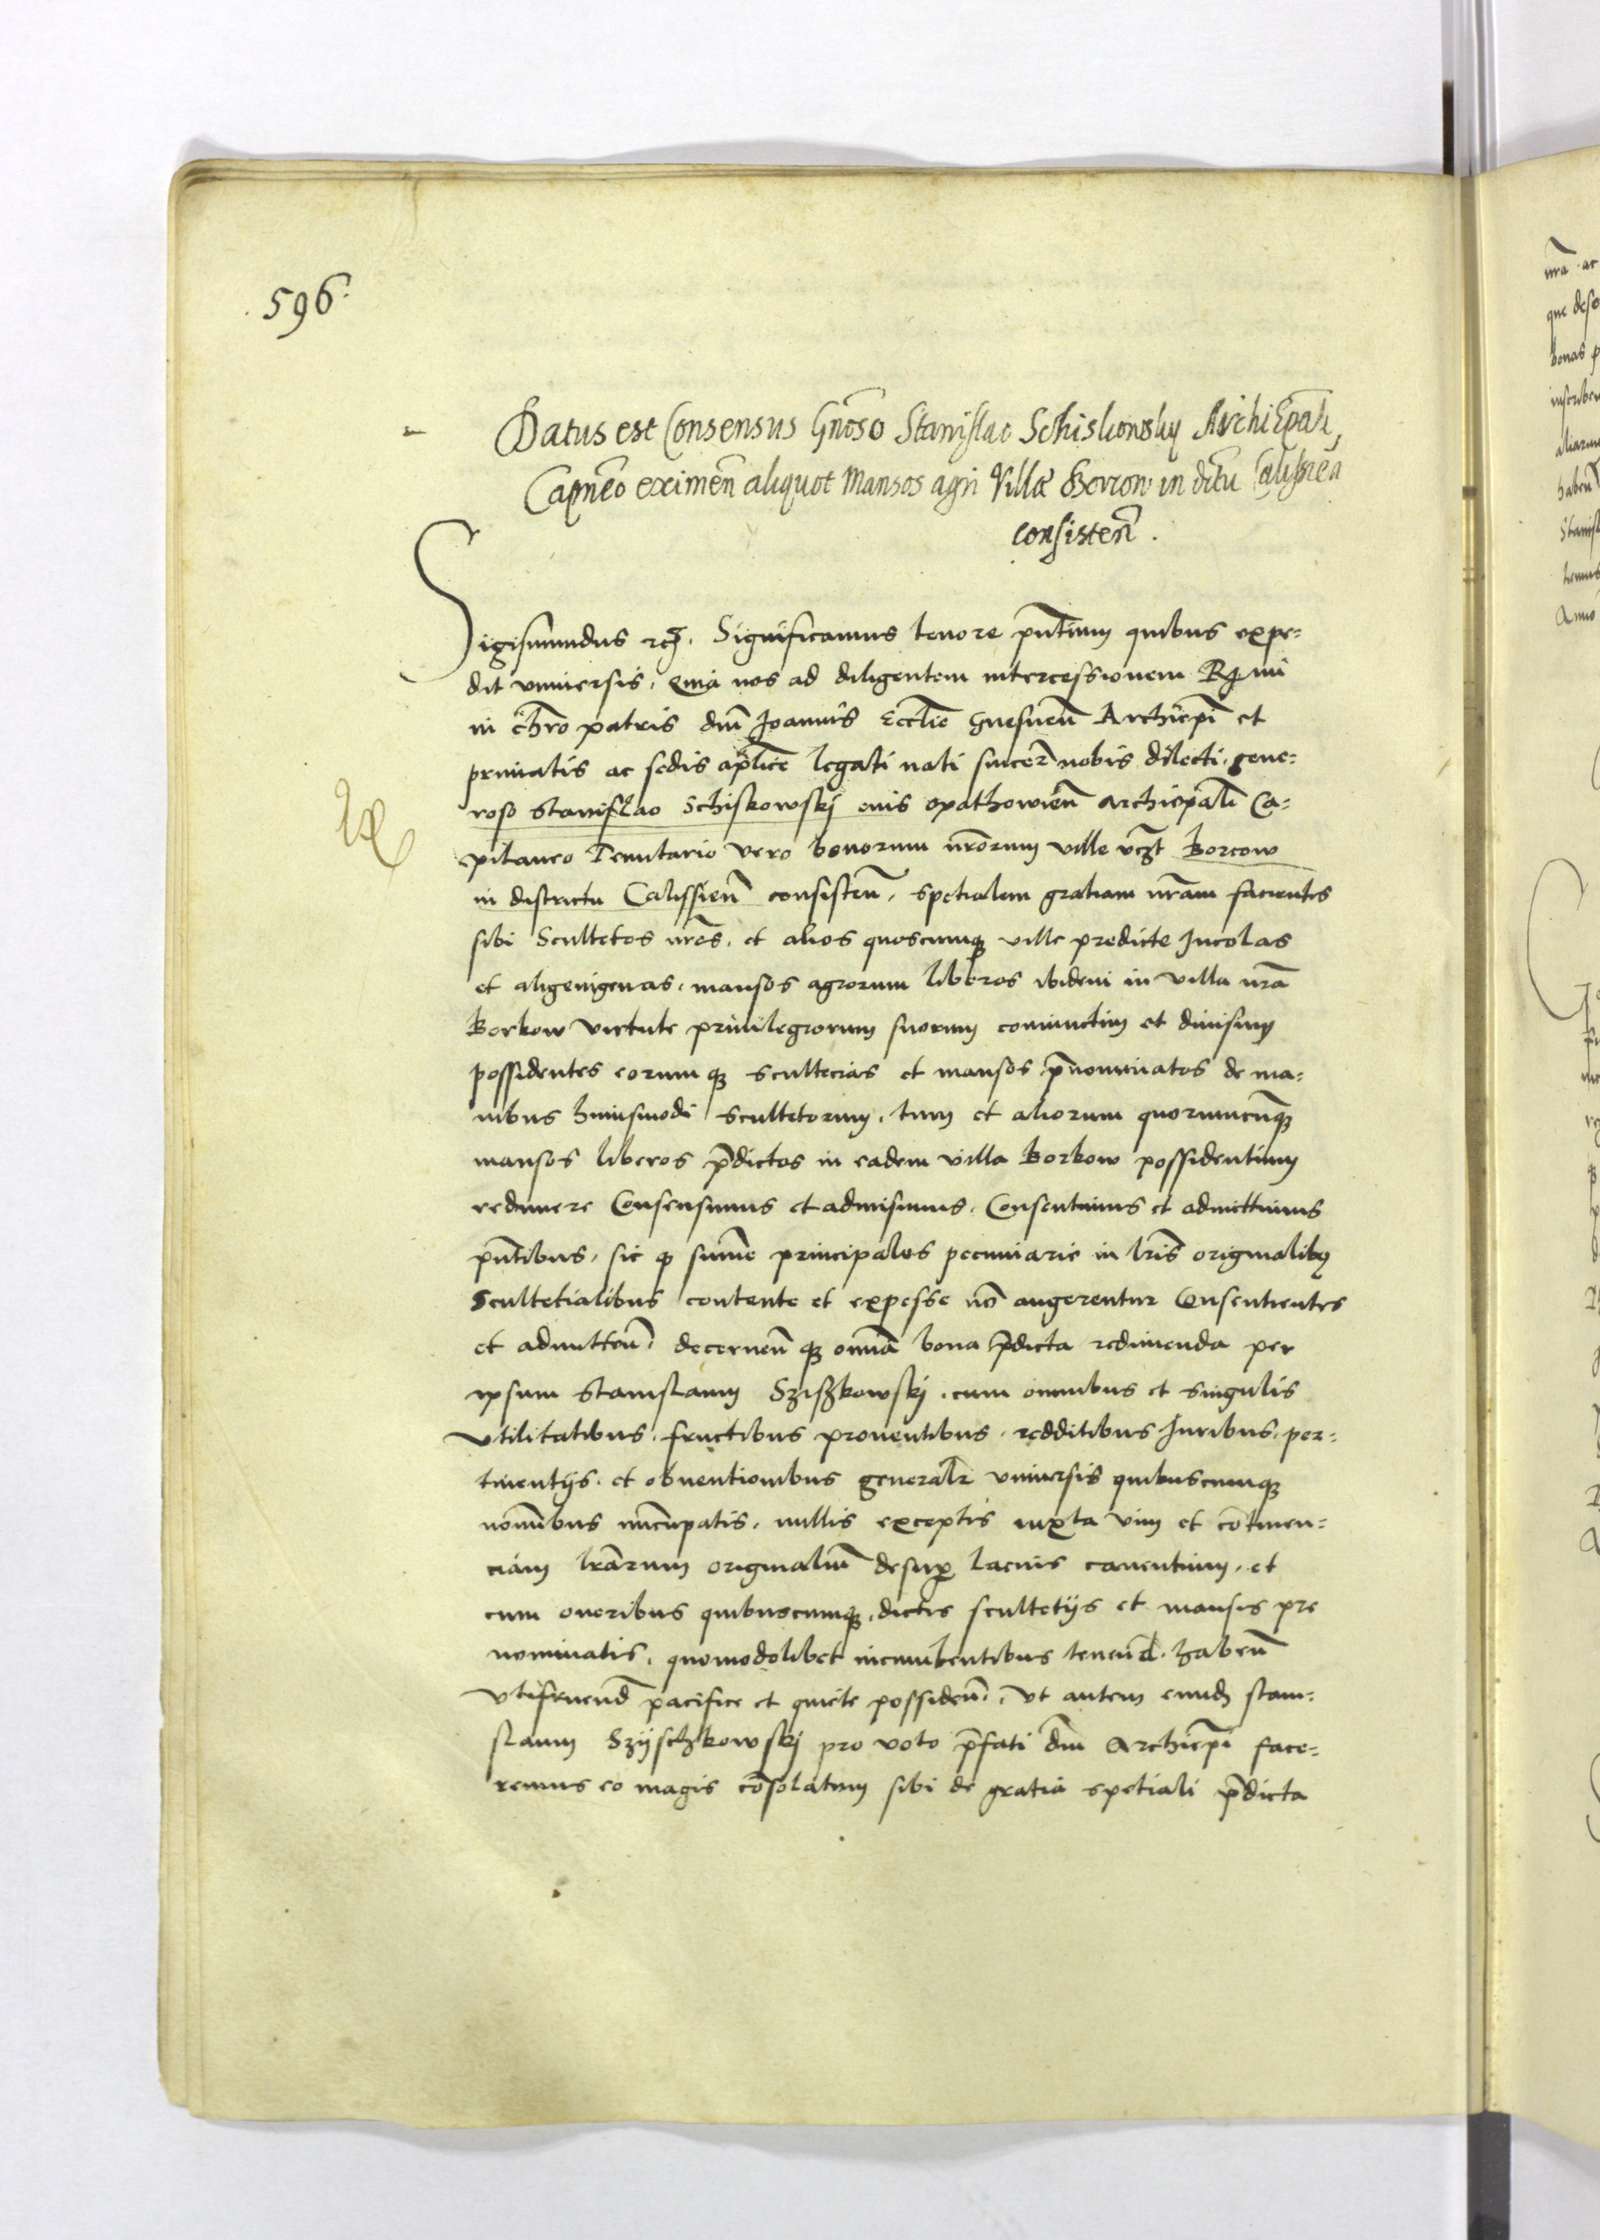 596.
Datus est Consensus Gnōso Stanislao Schiskowsky ArchiEpāli,
Capnēo eximēn aliquot Mansos agri Villæ Borcow in dictu
consistēn.
Sigismundus rex. Significamus tenore pñtium quibus expe=
dit vniuersis, Quia nos ad diligentem intercessionem Rmi
in Chrō patris dñi Joannis Ecclīe Gnesneñ Archiepī et
primatis ac sedis aplīce legati nati sincere nobis dilecti, gene=
roso Stanislao Schiskowskj opathowieñ archiepāli Ca=
pitaneo Tenutario vero bonorum nrōrum ville Borcow
in districtu Calissieñ consisteñ, spetialem gratiam nrām facientes
sibi Scultetos nrōs, et alios quoscumque ville predicte Incolas
et aligenigenas, mansos agrorum liberos ibidem in villa nrā
Borkow virtute priuilegiorum suorum coniunctim et diuisim
possidentes eorumque scultecias et mansos prenominatos de ma=
nibus huiusmodi scultetorum, tum et aliorum quorumcunque
mansos liberos predictos in eadem villa Borkow possidentium
redimere Consensimus et admisimus, Consentimus et admittimus
pñtibus, sic quod summe principales pecuniarie in lris originalibus
Scultetialibus contente et expesse nō augerentur Consentientes
et admitteñ, decerneñ que omnia bona predicta redimenda per
ipsum Stanislaum Sziszkowskj, cum omnibus et singulis
vtilitatibus, fructibus prouentibus, redditibus Juribus, per=
tinentijs, et obuentionibus generalr vniuersis quibuscumque
nominibus nuncupatis, nullis exceptis iuxta vim et contineñ=
ciam lrārum originalium desuper lacius cauentium, et
cum oneribus quibuscumque, dictis scultetijs et mansis pre
nominatis, quomodolibet incumbentibus teneñd, habeñ
vtifrueñd pacifice et quiete possideñ, Vt autem eundem stani=
slaum Szÿschkowskj pro voto prefati dñi Archiepī face=
remus eo magis cōsolatum sibi de gratia spetiali predicta